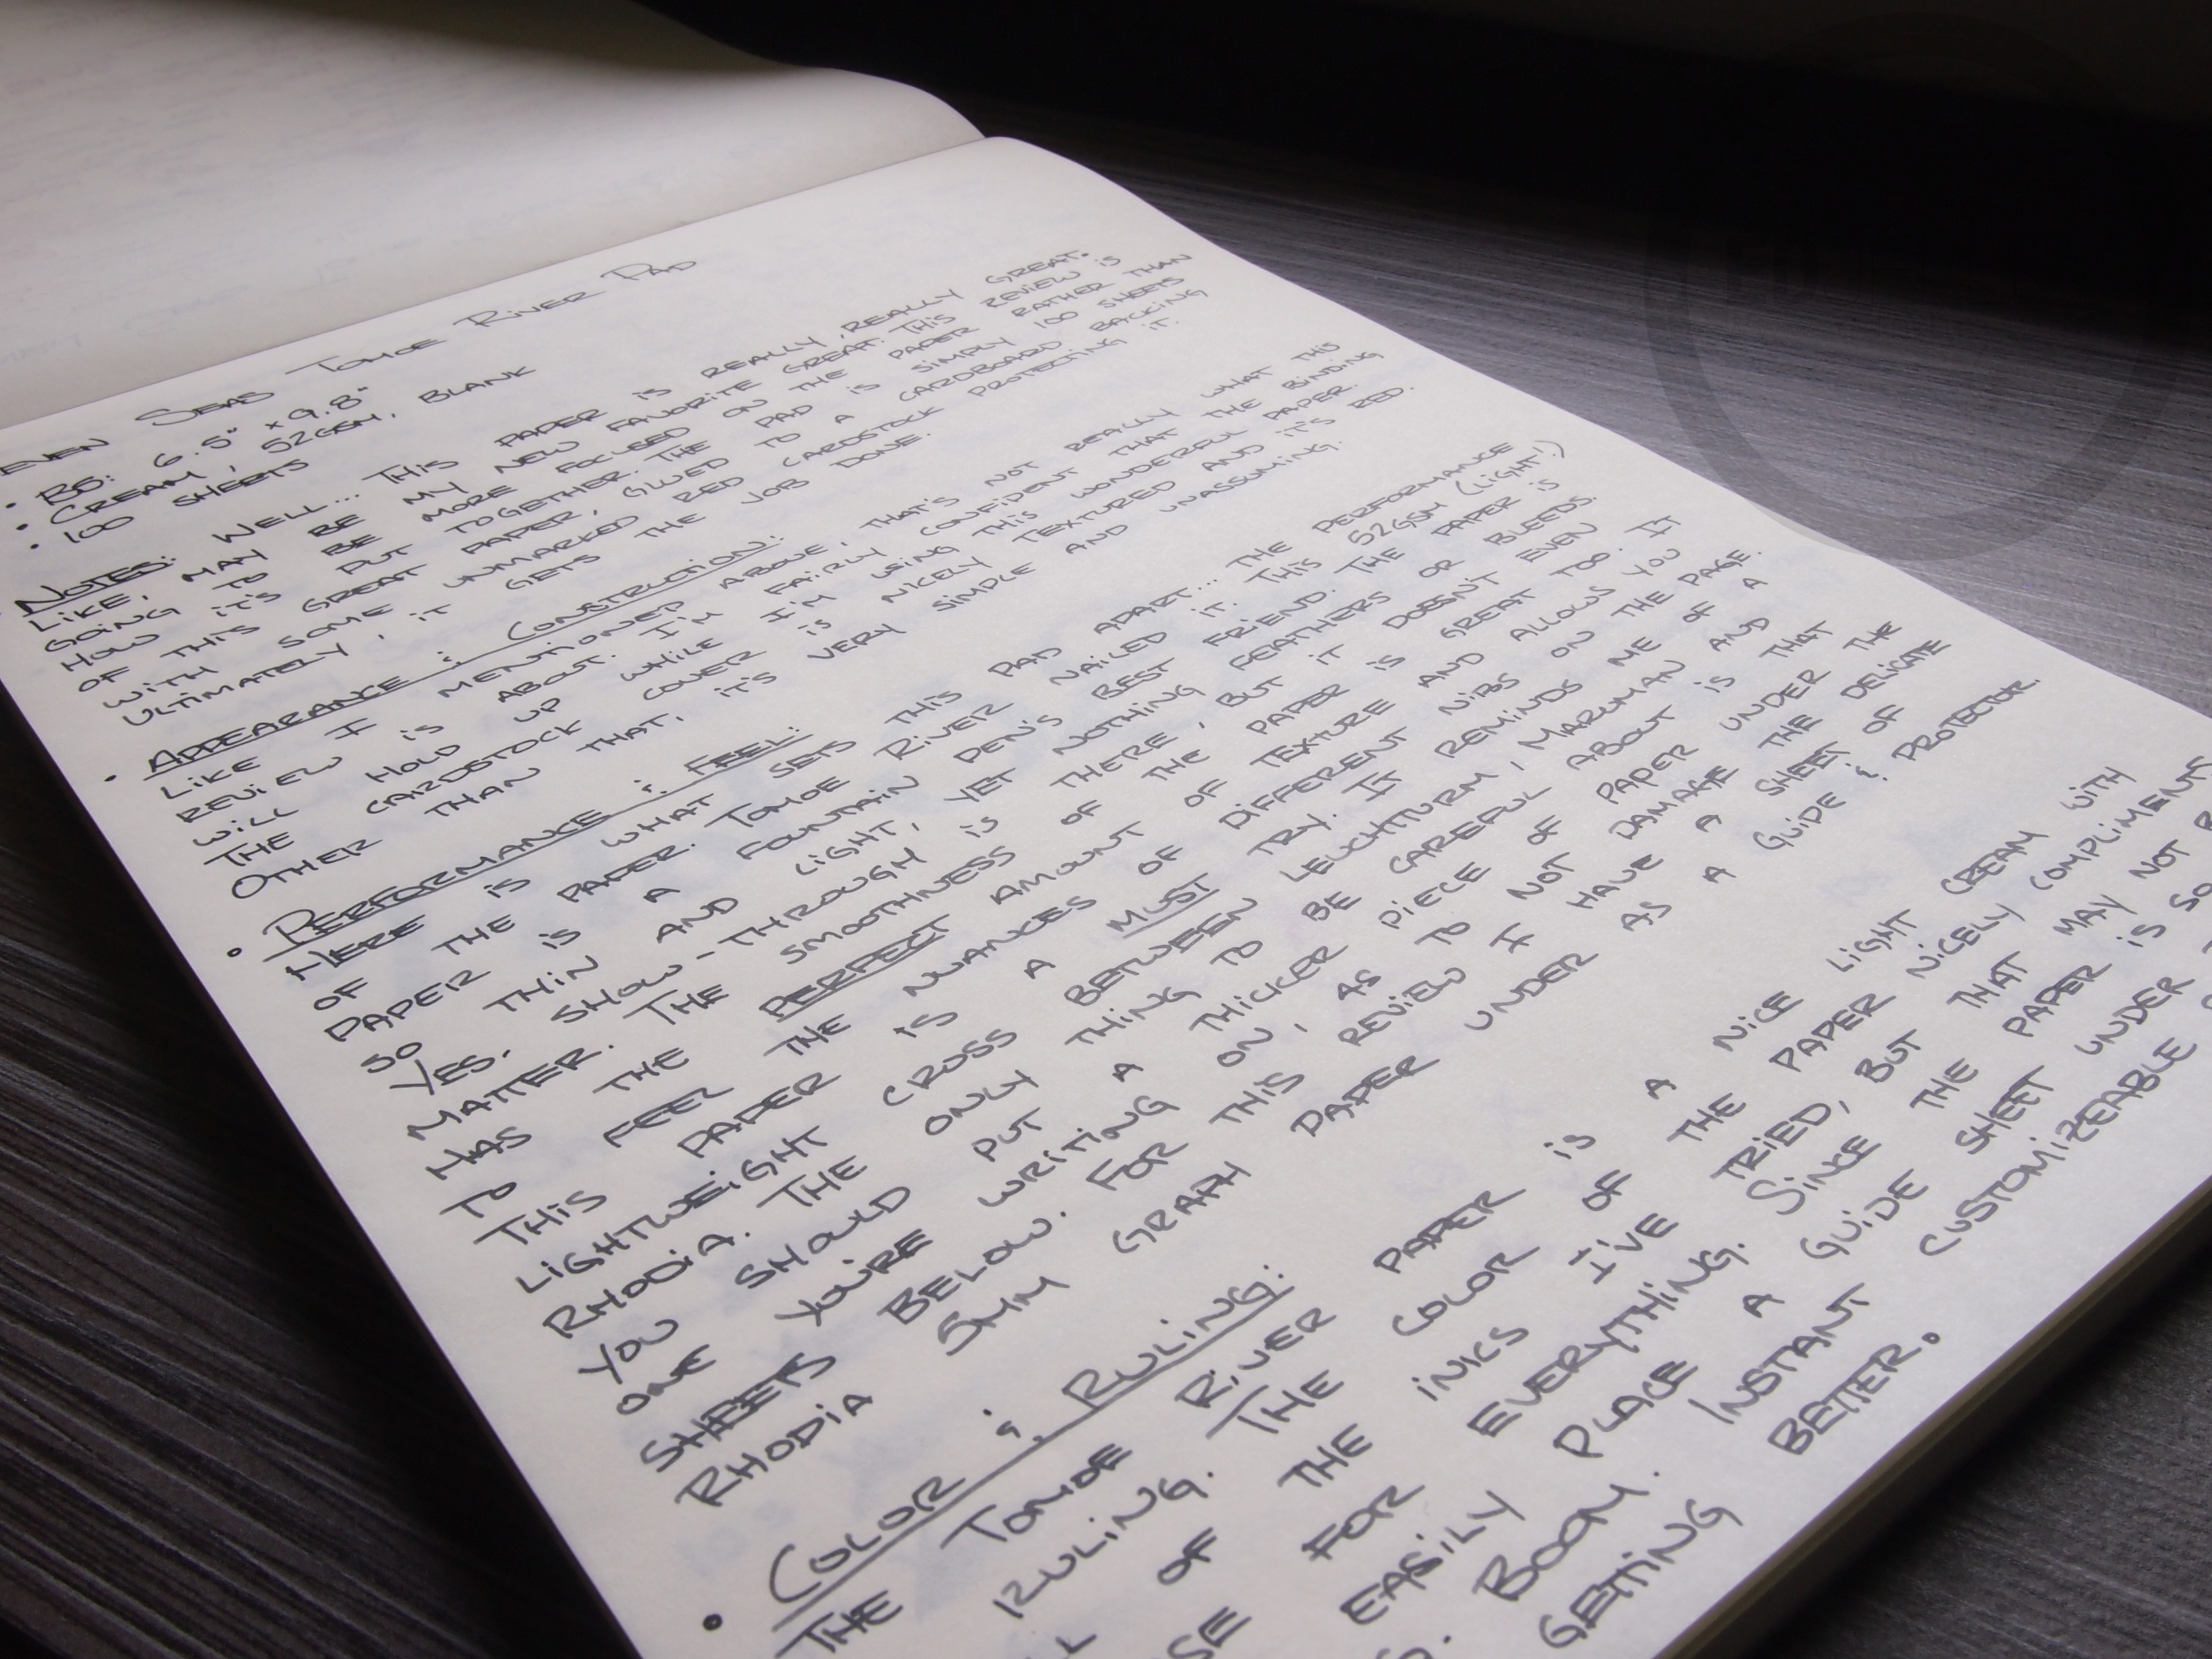 EVEN SEAS TOMOE RIVER PAD
• B5: 6.5" x 9.8"
• CREAM, 52GSM, BLANK
• 100 SHEETS
NOTES: WELL... THIS PAPER IS REALLY, REALLY GREAT.
LIKE, MAY BE MY NEW FAVORITE GREAT. THIS REVIEW IS
GOING TO BE MORE FOCUSED ON THE PAPER RATHER THAN
HOW IT'S PUT TOGETHER. THE PAD IS SIMPLY 100 SHEETS
OF THIS GREAT PAPER, GLUED TO A CARDBOARD BACKING
WITH SOME UNMARKED RED CARDSTOCK PROTECTING IT.
ULTIMATELY, IT GETS THE JOB DONE.
• APPEARANCE & CONSTRUCTION:
LIKE I MENTIONED ABOVE, THAT'S NOT REALLY WHAT THIS
REVIEW IS ABOUT. I'M FAIRLY CONFIDENT THAT THE BINDING
WILL HOLD UP WHILE I'M USING THIS WONDERFUL PAPER.
THE CARDSTOCK COVER IS NICELY TEXTURED AND IT'S RED.
OTHER THAN THAT, IT'S VERY SIMPLE AND UNASSUMING.
• PERFORMANCE & FEEL:
HERE IS WHAT SETS THIS PAD APART... THE PERFORMANCE
OF THE PAPER. TOMOE RIVER NAILED IT. THIS 52GSM (LIGHT!)
PAPER IS A FOUNTAIN PEN'S BEST FRIEND. THE PAPER IS
SO THIN AND LIGHT, YET NOTHING FEATHERS OR BLEEDS.
YES, SHOW-THROUGH IS THERE, BUT IT DOESN'T EVEN
MATTER. THE SMOOTHNESS OF THE PAPER IS GREAT TOO. IT
HAS THE PERFECT AMOUNT OF TEXTURE AND ALLOWS YOU
TO FEEL THE NUANCES OF DIFFERENT NIBS ON THE PAGE.
THIS PAPER IS A MUST TRY. IT REMINDS ME OF A
LIGHTWEIGHT CROSS BETWEEN LEUCHTTURM, MARUMAN AND
RHODIA. THE ONLY THING TO BE CAREFUL ABOUT IS THAT
YOU SHOULD PUT A THICKER PIECE OF PAPER UNDER THE
ONE YOU'RE WRITING ON, AS TO NOT DAMAGE THE DELICATE
SHEETS BELOW. FOR THIS REVIEW I HAVE A SHEET OF
RHODIA 5MM GRAPH PAPER UNDER AS A GUIDE & PROTECTOR.
• COLOR & RULING:
THE TOMOE RIVER PAPER IS A NICE LIGHT CREAM WITH
RULING. THE COLOR OF THE PAPER NICELY COMPLIMENTS
OF THE INKS I'VE TRIED, BUT THAT MAY NOT
FOR EVERYTHING. SINCE THE PAPER IS SO
EASILY PLACE A GUIDE SHEET UNDER
BOOM. INSTANT CUSTOMIZEABLE
GETTING BETTER.